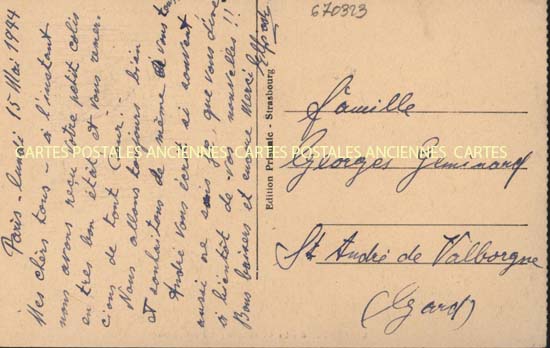 Paris - lundi 15 Mai 1944
Mes chers tous - à l'instant
nous avons reçu votre petit colis
en très bon état et vous remer-
cions de tout cœur.
Nous allons toujours bien
et souhaitons de même à vous tous
André vous écrit si souvent
aussi ne sais je que vous dire
à bientôt de vos nouvelles !!
Bons baisers et encore Merci
Edition Primale - Strasbourg
670323
Famille
Georges Geminard
St André de Valborgne
(Gard)
CARTES POSTALES ANCIENNES CARTES POSTALES ANCIENNES CARTES POSTALES ANCIENNES